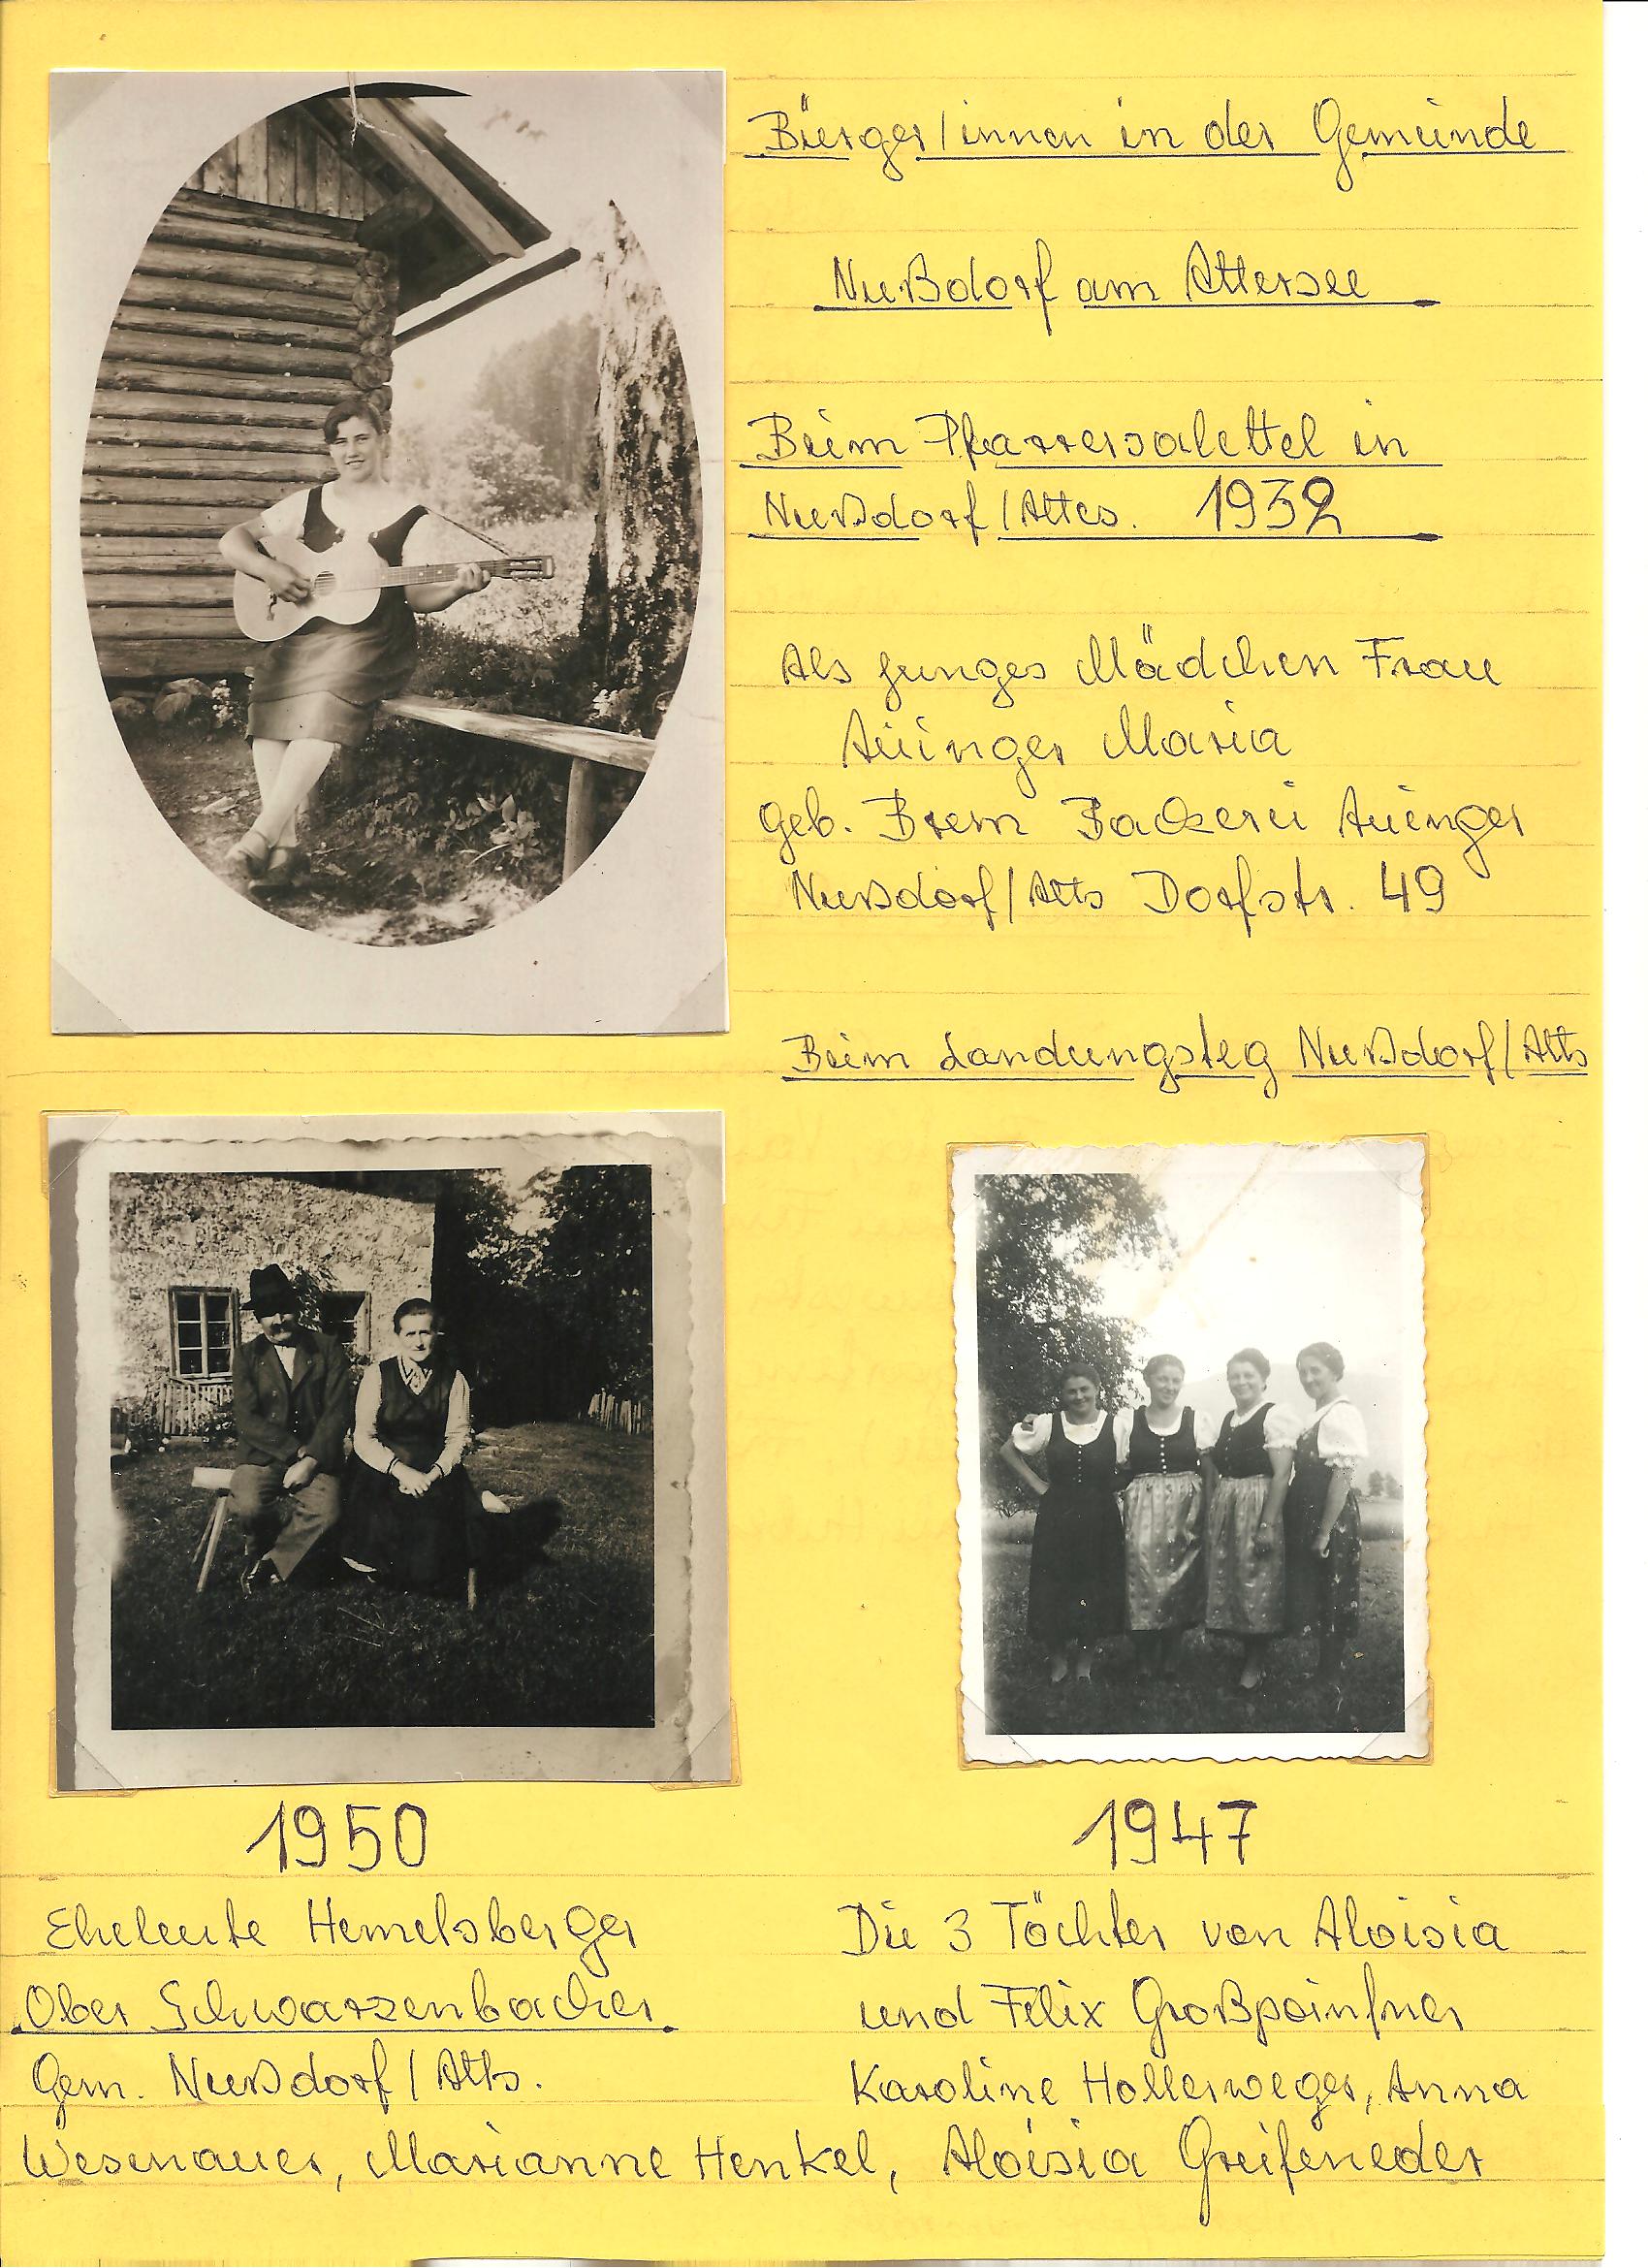 Bürger/innen in der Gemeinde
Nußdorf am Attersee
Beim Pfarrersalettel in
Nußdorf/Atters. 1932
Als junges Mädchen Frau
Auinger Maria
geb. Brem Backerei Auinger
Nußdorf/Atts Dorfstr. 49
Beim Landungsteg Nußdorf/Atts
1950
Eheleute Hemetsberger
Ober Schwarzenbacher
Gem. Nußdorf/Atts.
1947
Die 3 Töchter von Aloisia
und Felix Großpointner
Karoline Hollerweger, Anna
Wesenauer, Marianne Henkel, Aloisia Greifeneder